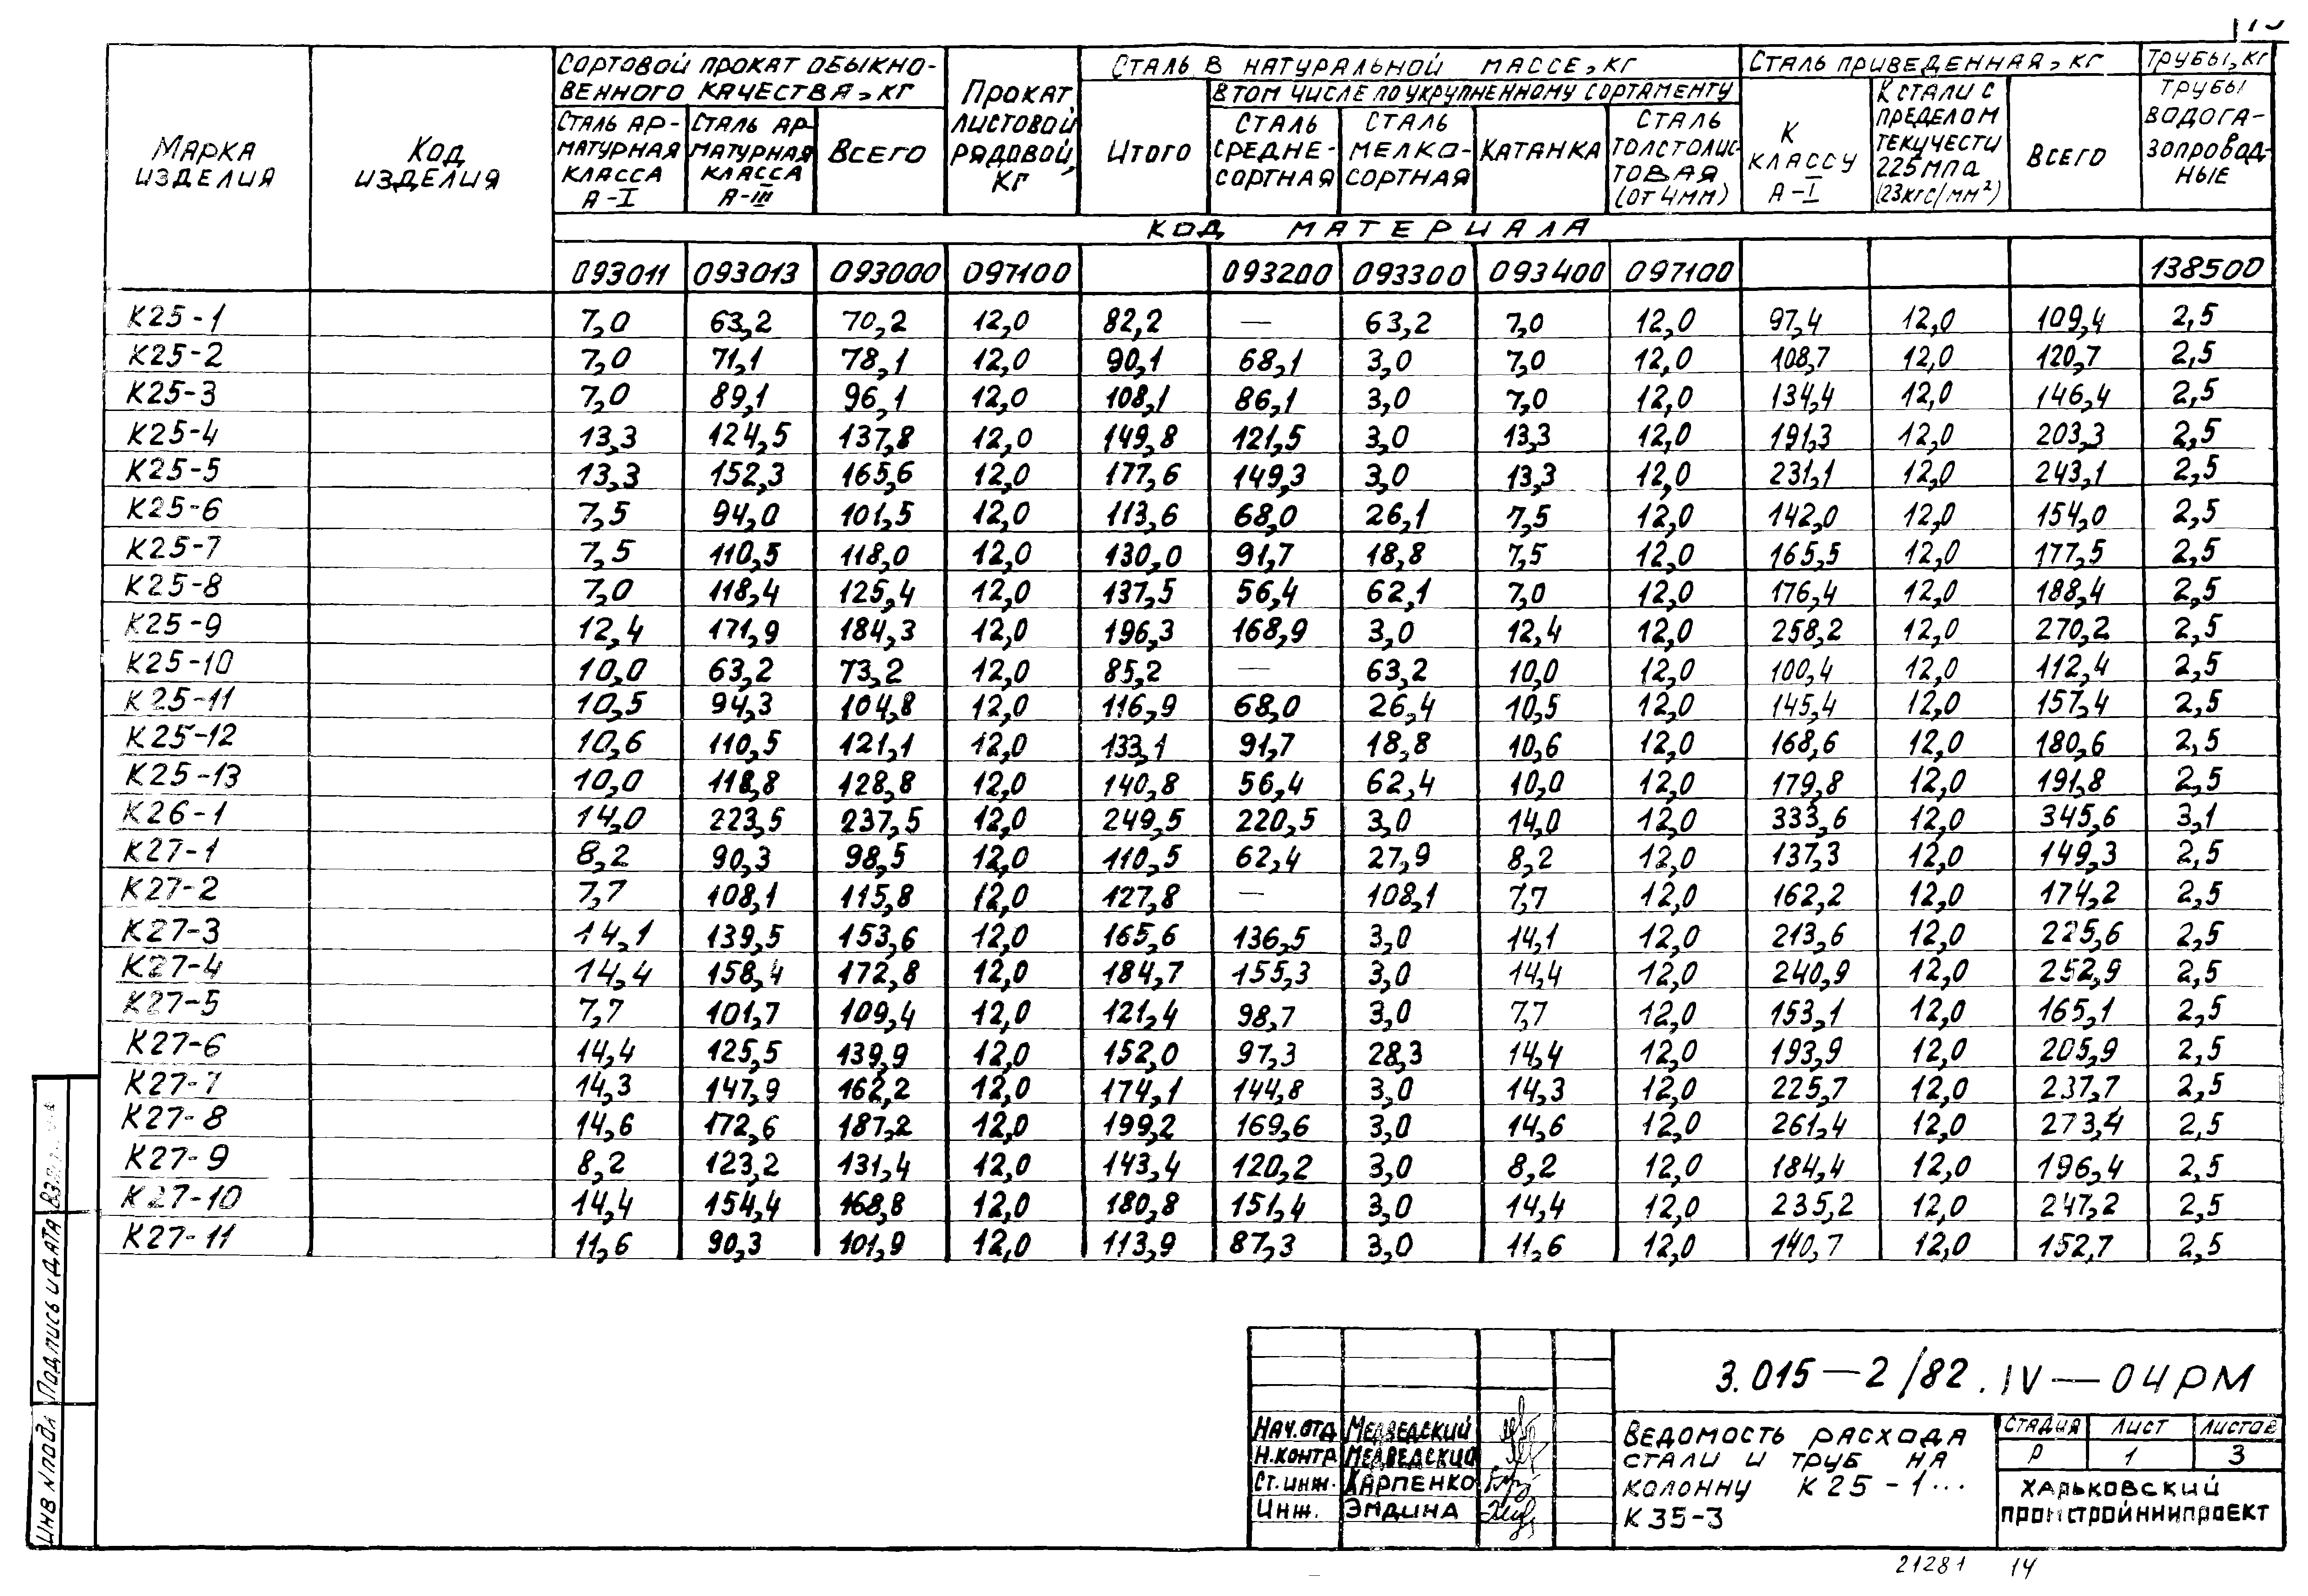 СОРТОВОЙ ПРОКАТ ОБЫКНО-
ВЕННОГО КАЧЕСТВА, КГ
ПРОКАТ ЛИСТОВОЙ РЯДОВОЙ, КГ
СТАЛЬ В НАТУРАЛЬНОЙ МАССЕ, КГ
СТАЛЬ ПРИВЕДЕННАЯ, КГ
ТРУБЫ, КГ
В ТОМ ЧИСЛЕ ПО УКРУПНЕННОМУ СОРТАМЕНТУ
МАРКА ИЗДЕЛИЯ
КОД ИЗДЕЛИЯ
СТАЛЬ АР-МАТУРНАЯ КЛАССА А-I
СТАЛЬ АР-МАТУРНАЯ КЛАССА А-III
ВСЕГО
ИТОГО
СТАЛЬ СРЕДНЕ-СОРТНАЯ
СТАЛЬ МЕЛКО-СОРТНАЯ
КАТАНКА
СТАЛЬ ТОЛСТОЛИС-ТОВАЯ (ОТ 4ММ)
К КЛАССУ А-I
К СТАЛИ С ПРЕДЕЛОМ ТЕКУЧЕСТИ 225 МПа (23 КГС/ММ²)
ВСЕГО
ТРУБЫ ВОДОГА-ЗОПРОВОД-НЫЕ
КОД МАТЕРИАЛА
093011 093013 093000 097100 093200 093300 093400 097100 138500
К25-1 7,0 63,2 70,2 12,0 82,2 — 63,2 7,0 12,0 97,4 12,0 109,4 2,5
К25-2 7,0 71,1 78,1 12,0 90,1 68,1 3,0 7,0 12,0 108,7 12,0 120,7 2,5
К25-3 7,0 89,1 96,1 12,0 108,1 86,1 3,0 7,0 12,0 134,4 12,0 146,4 2,5
К25-4 13,3 124,5 137,8 12,0 149,8 121,5 3,0 13,3 12,0 191,3 12,0 203,3 2,5
К25-5 13,3 152,3 165,6 12,0 177,6 149,3 3,0 13,3 12,0 231,1 12,0 243,1 2,5
К25-6 7,5 94,0 101,5 12,0 113,6 68,0 26,1 7,5 12,0 142,0 12,0 154,0 2,5
К25-7 7,5 110,5 118,0 12,0 130,0 91,7 18,8 7,5 12,0 165,5 12,0 177,5 2,5
К25-8 7,0 118,4 125,4 12,0 137,5 56,4 62,1 7,0 12,0 176,4 12,0 188,4 2,5
К25-9 12,4 171,9 184,3 12,0 196,3 168,9 3,0 12,4 12,0 258,2 12,0 270,2 2,5
К25-10 10,0 63,2 73,2 12,0 85,2 — 63,2 10,0 12,0 100,4 12,0 112,4 2,5
К25-11 10,5 94,3 104,8 12,0 116,9 68,0 26,4 10,5 12,0 145,4 12,0 157,4 2,5
К25-12 10,6 110,5 121,1 12,0 133,1 91,7 18,8 10,6 12,0 168,6 12,0 180,6 2,5
К25-13 10,0 118,8 128,8 12,0 140,8 56,4 62,4 10,0 12,0 179,8 12,0 191,8 2,5
К26-1 14,0 223,5 237,5 12,0 249,5 220,5 3,0 14,0 12,0 333,6 12,0 345,6 3,1
К27-1 8,2 90,3 98,5 12,0 110,5 62,4 27,9 8,2 12,0 137,3 12,0 149,3 2,5
К27-2 7,7 108,1 115,8 12,0 127,8 — 108,1 7,7 12,0 162,2 12,0 174,2 2,5
К27-3 14,1 139,5 153,6 12,0 165,6 136,5 3,0 14,1 12,0 213,6 12,0 225,6 2,5
К27-4 14,4 158,4 172,8 12,0 184,7 155,3 3,0 14,4 12,0 240,9 12,0 252,9 2,5
К27-5 7,7 101,7 109,4 12,0 121,4 98,7 3,0 7,7 12,0 153,1 12,0 165,1 2,5
К27-6 14,4 125,5 139,9 12,0 152,0 97,3 28,3 14,4 12,0 193,9 12,0 205,9 2,5
К27-7 14,3 147,9 162,2 12,0 174,1 144,8 3,0 14,3 12,0 225,7 12,0 237,7 2,5
К27-8 14,6 172,6 187,2 12,0 199,2 169,6 3,0 14,6 12,0 261,4 12,0 273,4 2,5
К27-9 8,2 123,2 131,4 12,0 143,4 120,2 3,0 8,2 12,0 184,4 12,0 196,4 2,5
К27-10 14,4 154,4 168,8 12,0 180,8 151,4 3,0 14,4 12,0 235,2 12,0 247,2 2,5
К27-11 11,6 90,3 101,9 12,0 113,9 87,3 3,0 11,6 12,0 140,7 12,0 152,7 2,5
ИНВ № ПОДЛ ПОДПИСЬ И ДАТА
3.015—2/82.IV—04РМ
НАЧ.ОТД МЕДВЕДСКИЙ
Н.КОНТР МЕДВЕДСКИЙ
СТ.ИНЖ. КАРПЕНКО
ИНЖ. ЭНДИНА
ВЕДОМОСТЬ РАСХОДА
СТАЛИ И ТРУБ НА
КОЛОННУ К25-1...
К35-3
СТАДИЯ ЛИСТ ЛИСТОВ
Р 1 3
ХАРЬКОВСКИЙ
ПРОМСТРОЙНИИПРОЕКТ
21281 14